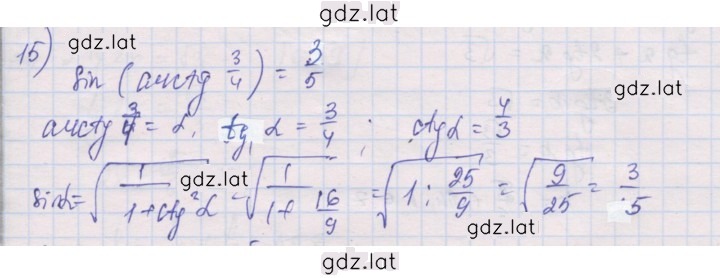 gdz.lat
15) gdz.lat
sin (arctg 3/4) = 3/5
arctg 3/4 = α, tg α = 3/4 ; ctg α = 4/3
sin α = √(1/(1+ctg²α)) = √(1/(1+16/9)) = √(1 : 25/9) = √(9/25) = 3/5
gdz.lat
gdz.lat
gdz.lat